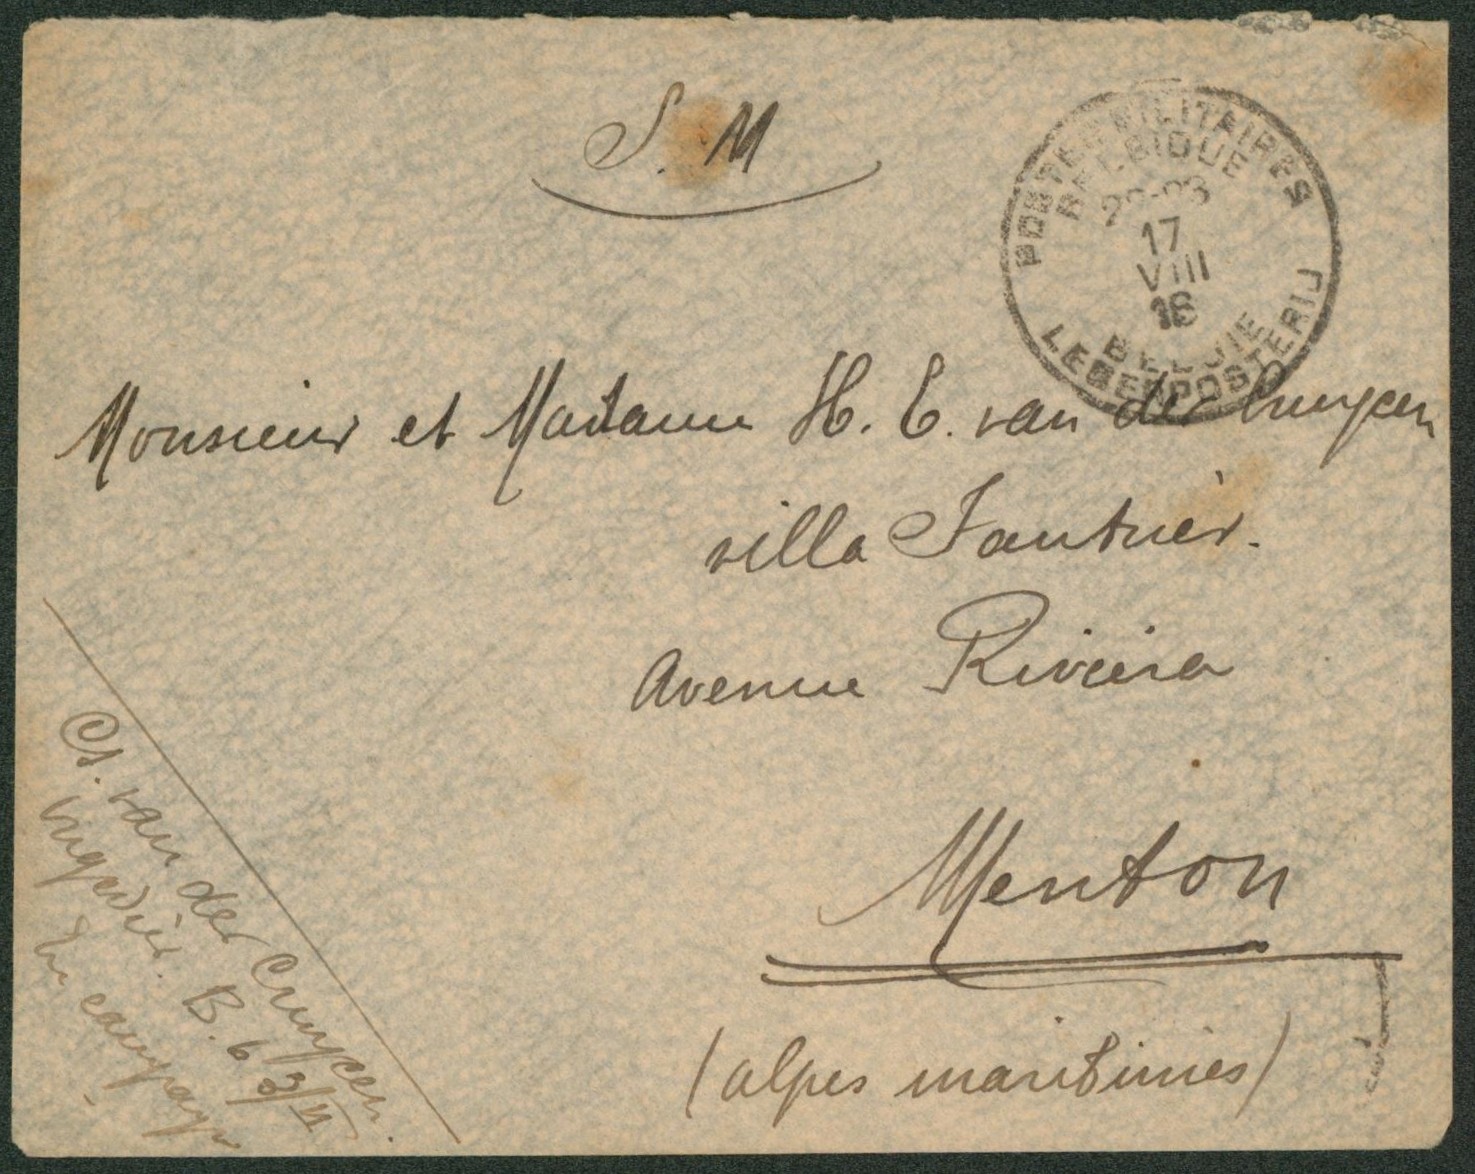 S. M
POSTES MILITAIRES
BELGIQUE
17
VIII
BELGIE
LEGERPOSTERIJ
Monsieur et Madame H. E. van der Cruycen
villa Fautrier.
Avenue Riviera
Menton
(alpes maritimes)
van der Cruycen.
B. 6 3/II
En campagne